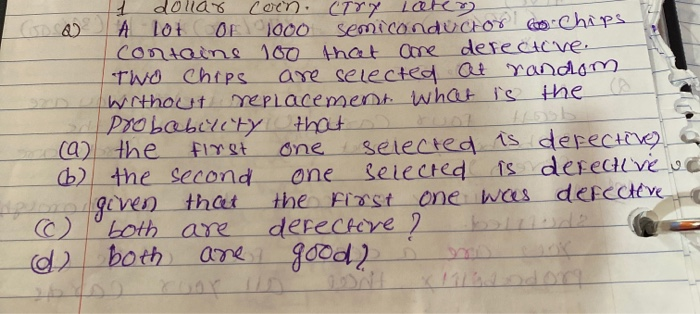 1 dollar coin. (Try Later)
a) A lot OF 1000 semiconductor chips
contains 100 that are defective.
Two chips are selected at random
without replacement. what is the
Probability that
(a) the first one selected is defective)
(b) the second one selected is defective
given that the First one was defective
(c) both are defective?
(d) both are good?